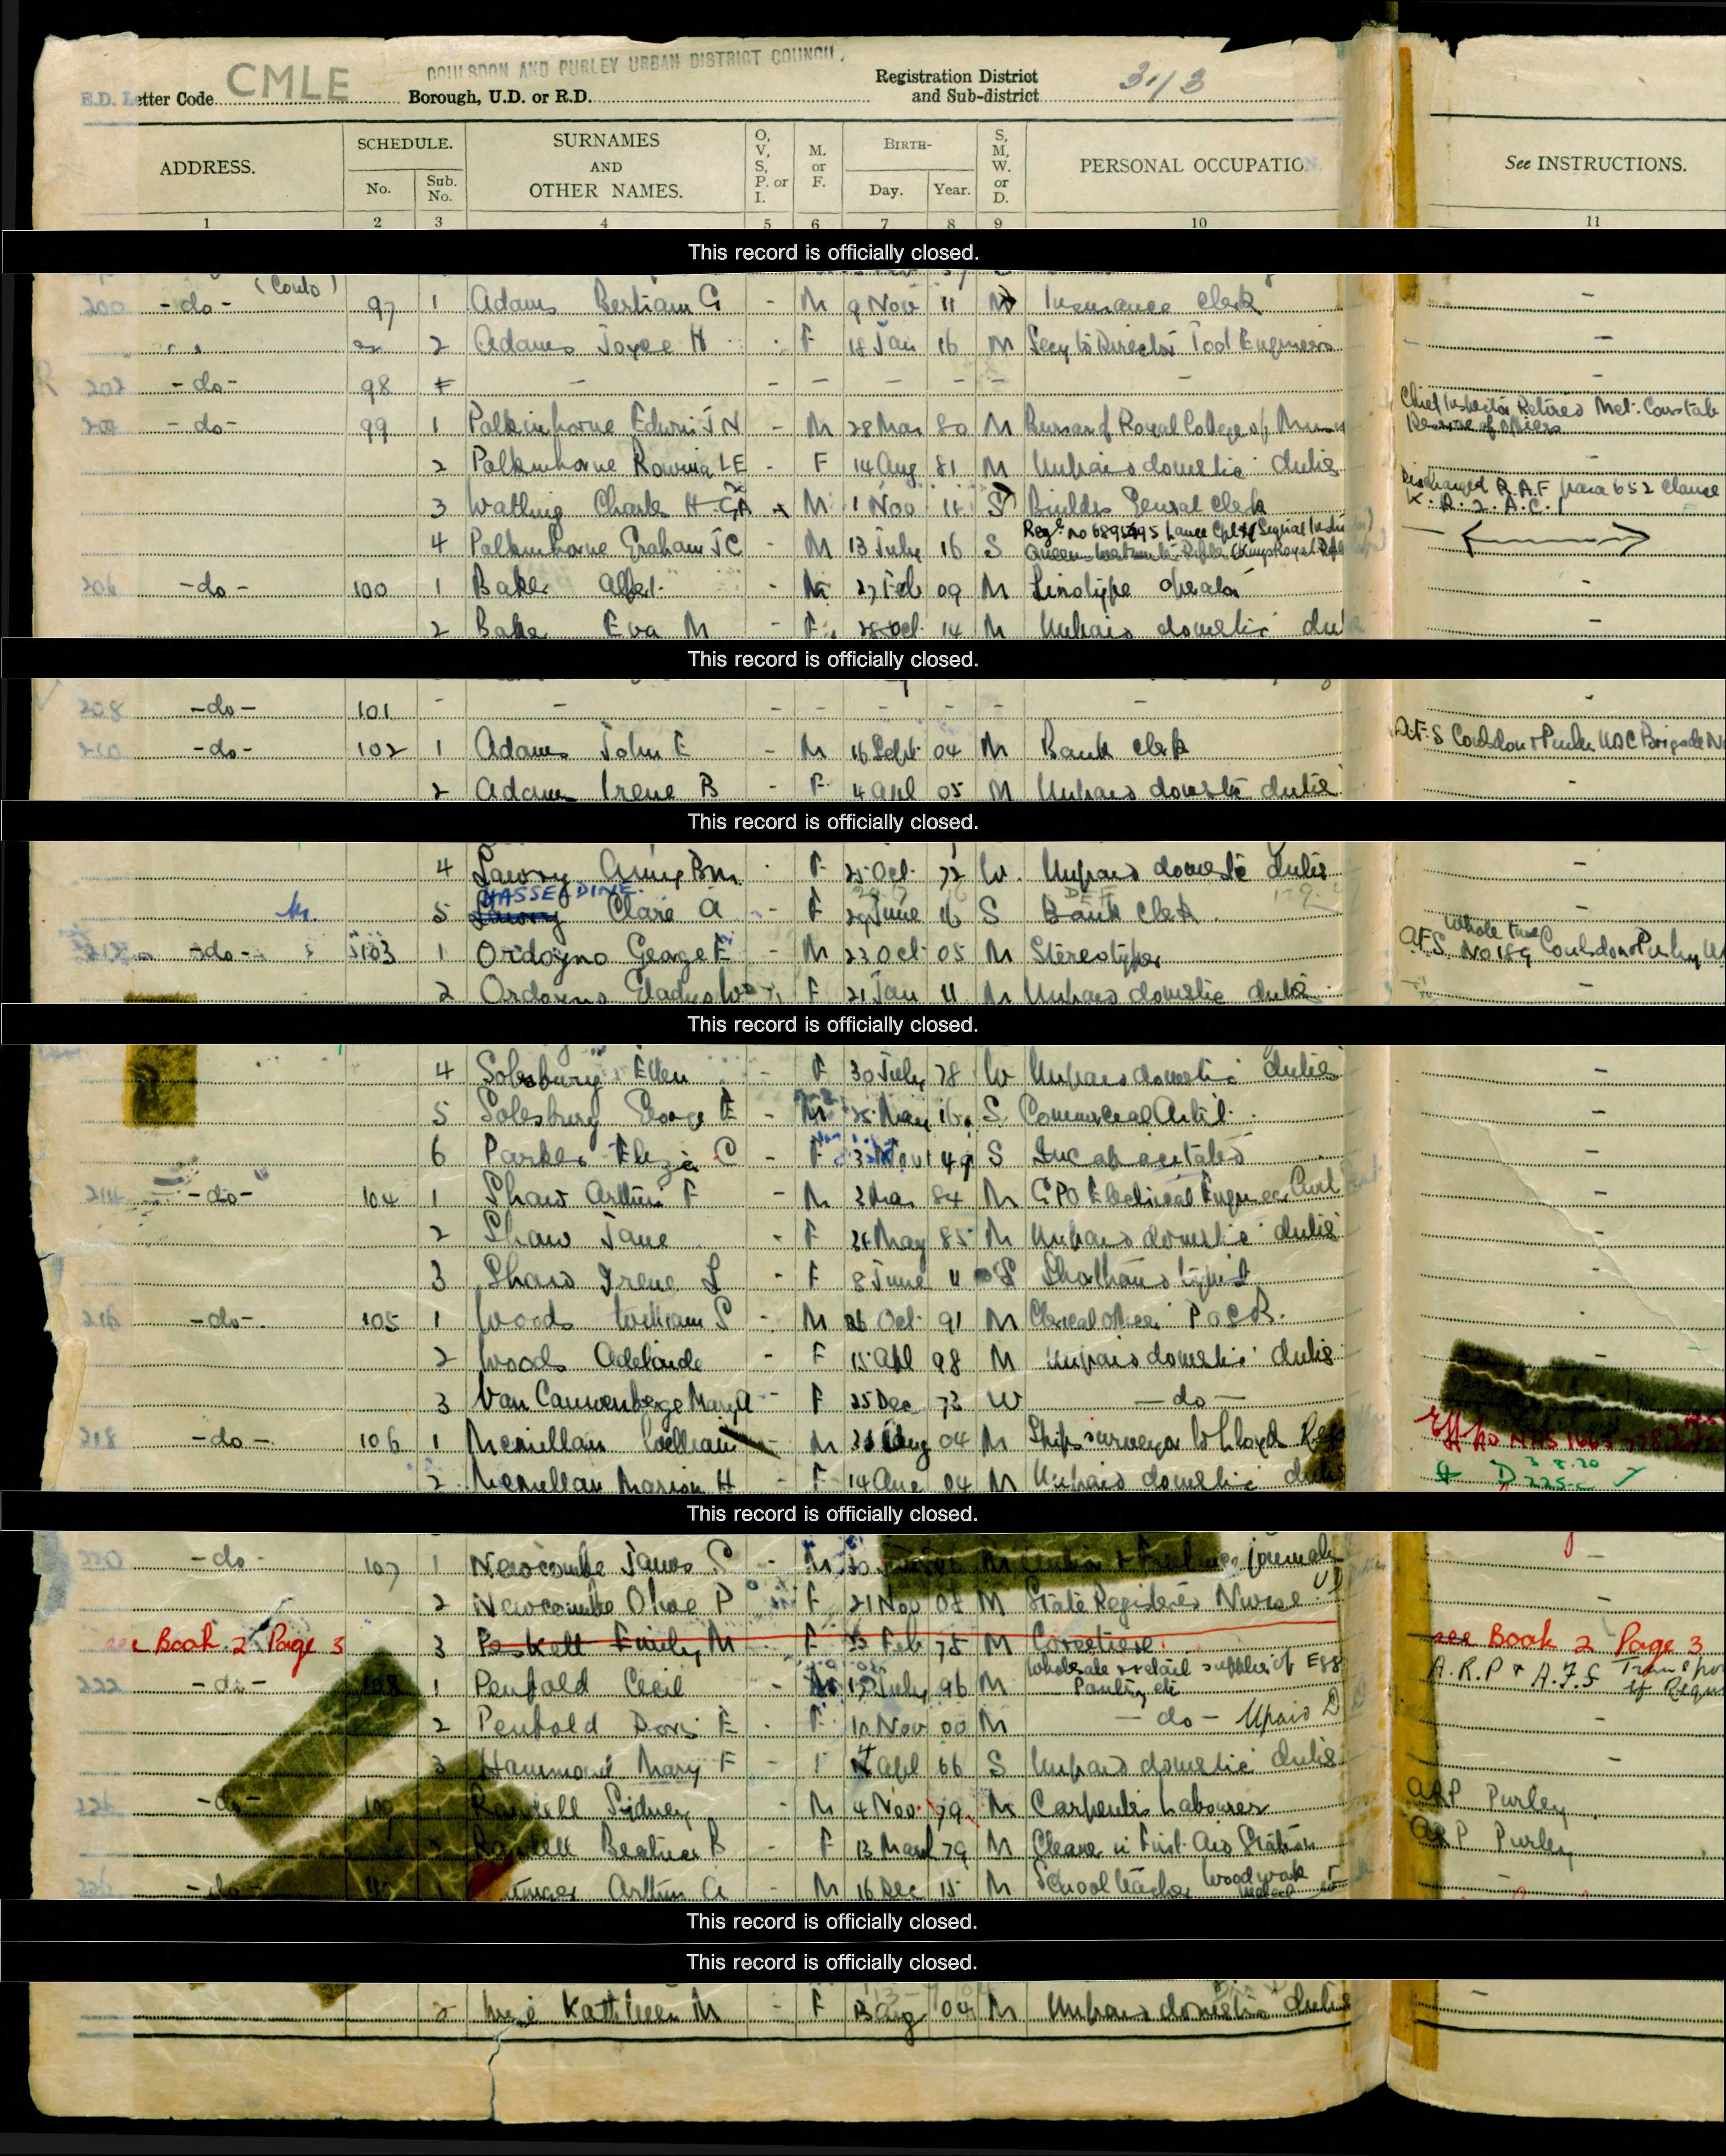 E.D. Letter Code CMLE Borough, U.D. or R.D. COULSDON AND PURLEY URBAN DISTRICT COUNCIL. Registration District and Sub-district 31/3
ADDRESS. SCHEDULE. No. Sub. No. SURNAMES AND OTHER NAMES. O, V, S, P. or I. M. or F. BIRTH- Day. Year. S, M, W. or D. PERSONAL OCCUPATIO See INSTRUCTIONS.
1 2 3 4 5 6 7 8 9 10 11
This record is officially closed.
200 -do- 97 1 Adams Bertram G - M 9 Nov 11 M Insurance Clerk -
2 Adams Joyce H F 18 Jan 16 M Secy to Director Tool Engineers -
202 -do- 98 - - - - - - - -
-do- 99 1 Polkinhorne Edwin J N - M 28 Mar 80 M Bursar of Royal College of Chief Inspector Retired Met. Constab Reserve of officers
2 Polkinhorne Rowina L E - F 14 Aug 81 M Unpaid domestic duties -
3 Watling Charles H M 1 Nov 11 S Builders General Clerk Discharged R.A.F para 652 Clause K.R. & A.C.I
4 Polkinhorne Graham J C - M 13 July 16 S Lance Cpl Signal Queens Westminster Rifles (Kings Royal
206 -do- 100 1 Baker - M 27 Feb 09 M Linotype operator -
2 Baker Eva M - F 28 Oct 14 M Unpaid domestic -
This record is officially closed.
208 -do- 101 - - - - - - -
210 -do- 102 1 Adams John E - M 16 Sept 04 M Bank clerk A.F.S Coulsdon & Purley UDC Brigade
2 Adams Irene B - F 4 Apl 05 M Unpaid domestic duties -
This record is officially closed.
4 Lawry F 25 Oct 72 W. Unpaid domestic duties -
HASSELDINE
5 Lawry Clare A F 29 June 16 S Bank Clerk
-do- 103 1 Ordoyno George E - M 23 Oct 05 M Stereotyper whole time A.F.S. No 189 Coulsdon & Purley
2 Ordoyno Gladys F 21 Jan 11 M Unpaid domestic duties -
This record is officially closed.
4 Solesbury Ellen - F 30 July 78 W Unpaid domestic duties -
5 Solesbury George E - M 25 May 16 S Commercial Artist -
6 Parker Eliza C - F Nov 49 S Incapacitated -
214 -do- 104 1 Shaw Arthur F - M 2 Mar 84 M GPO Electrical Engineer -
2 Shaw Jane - F May 85 M Unpaid domestic duties -
3 Shaw Irene L - F 8 June 11 S Shorthand typist -
216 -do- 105 1 Woods William S - M 26 Oct 91 M Clerical Officer -
2 Woods Adelaide - F 15 Apl 98 M Unpaid domestic duties -
3 Van Cauwenberge Mary A - F 25 Dec 73 W -do-
218 -do- 106 1 Memillan William - M Aug 04 M Ships surveyor to Lloyds
2 Memillan Marion H - F 14 Aug 04 M Unpaid domestic
This record is officially closed.
220 -do- 107 1 Newcombe James S - M M -
2 Newcombe Olive P F 21 Nov 08 M State Registered Nurse -
see Book 2 Page 3 3 Poskett Emily M F Feb 75 M Corsetiere see Book 2 Page 3
222 -do- 108 1 Penfold Cecil - M July 96 M Wholesale & retail supplier of Egg Poultry etc A.R.P & A.F.S Transpor if Requi
2 Penfold Doris E F 10 Nov 00 M -do- Upaid D -
3 Hammond Mary F - F 4 Apl 66 S Unpaid domestic duties -
-do- Sidney - M 4 Nov 79 M Carpenters Labourer ARP Purley
Beatrice B - F 13 79 M Cleaner in First Aid Station ARP Purley
-do- Arthur A - M 16 Dec 15 M School teacher Woodwork -
This record is officially closed.
This record is officially closed.
2 Kathleen M - F Aug 04 M Unpaid domestic duties -